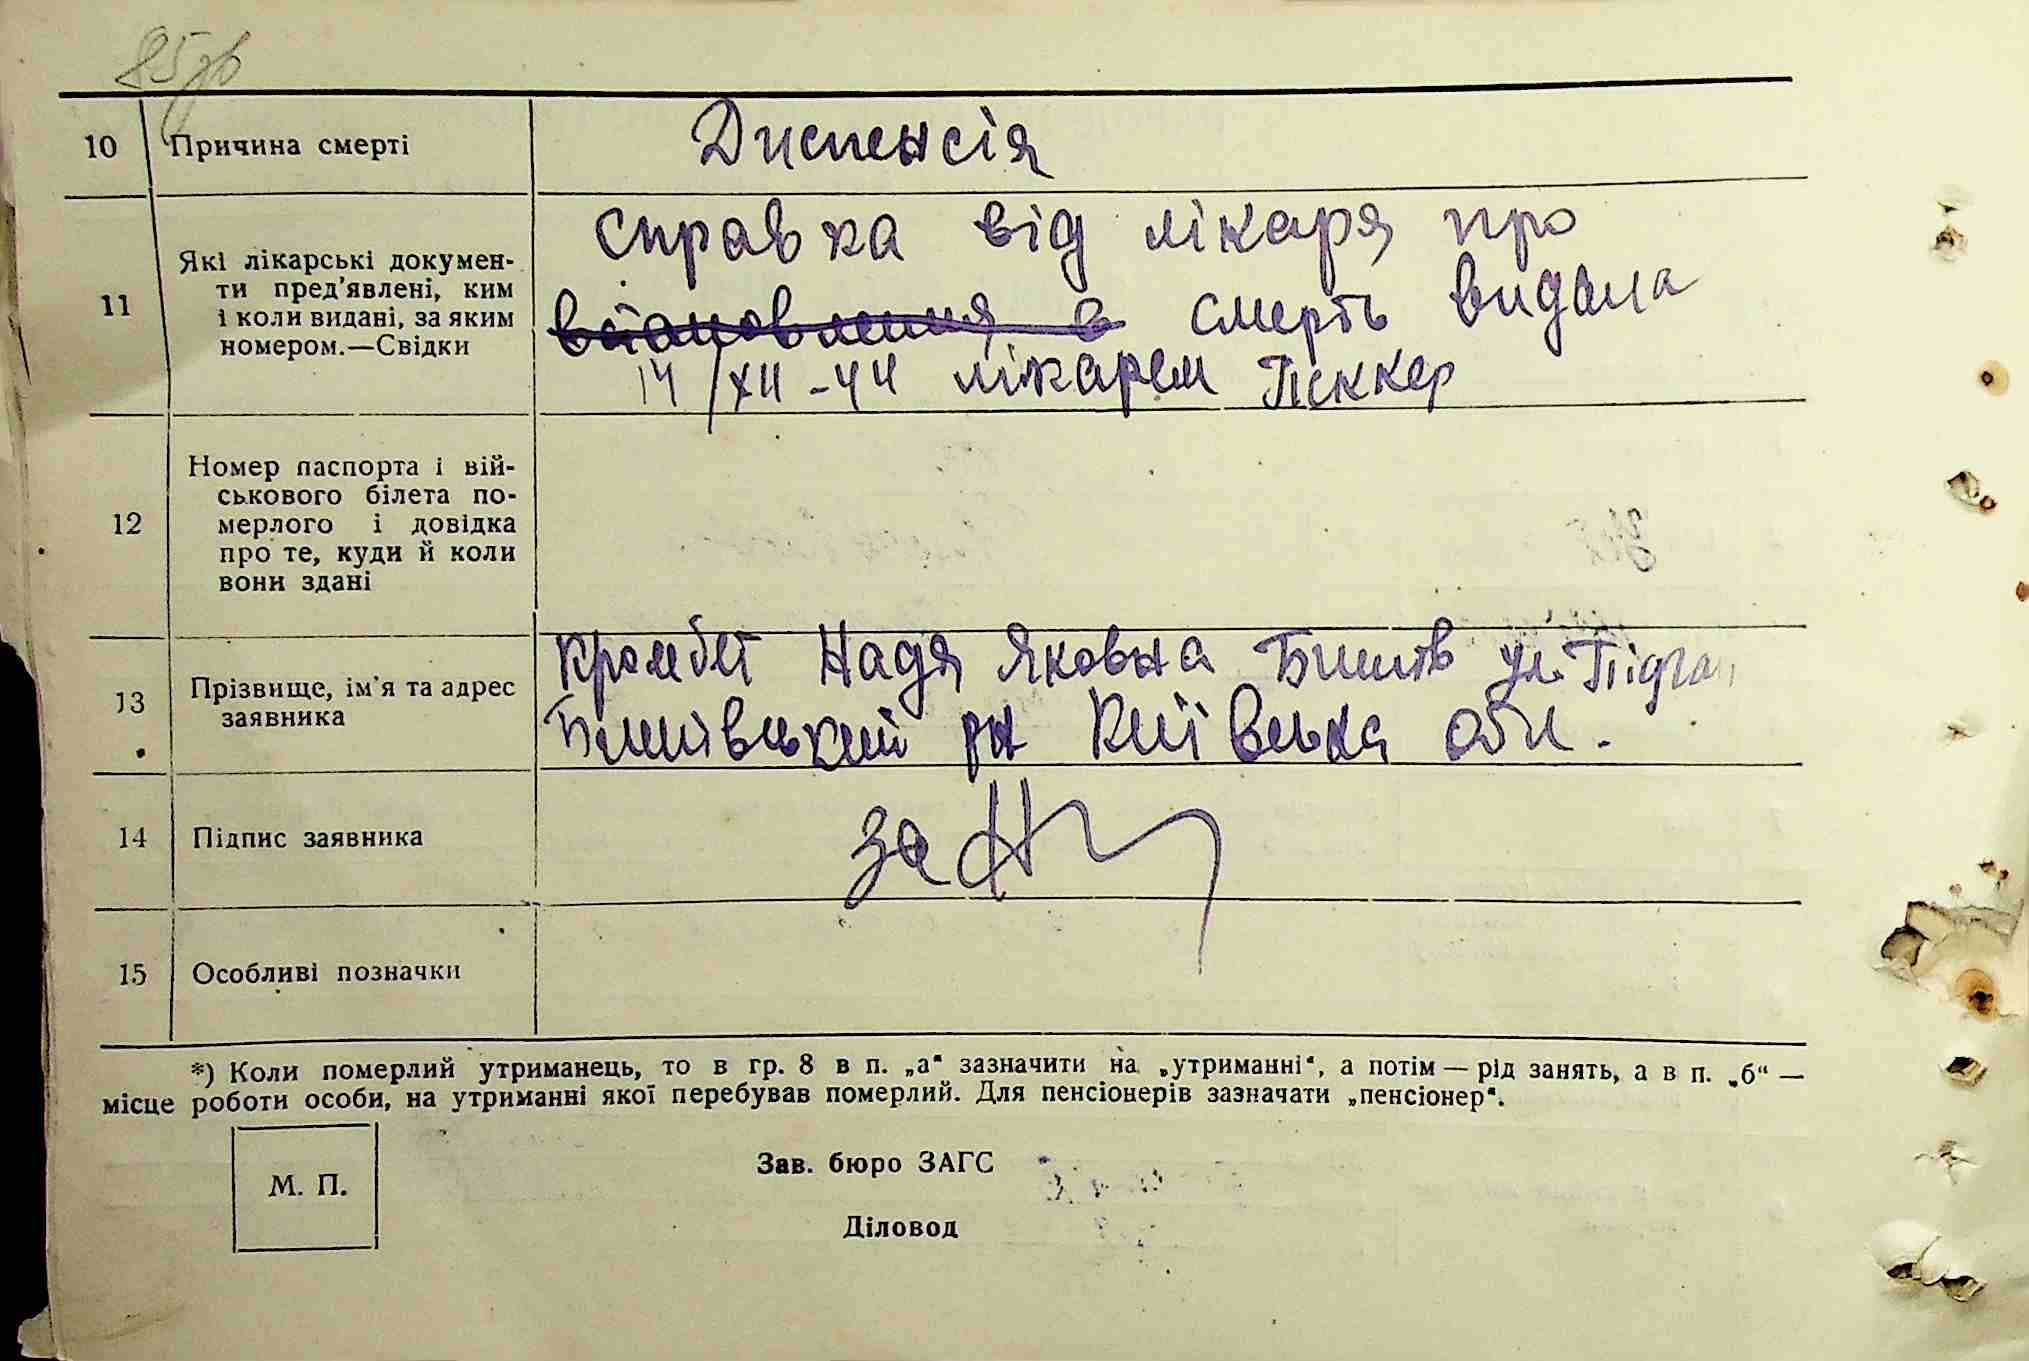 85зв
10 Причина смерті Диспенсія
11 Які лікарські докумен-
ти пред'явлені, ким
і коли видані, за яким
номером.—Свідки
справка від лікаря про
встановлення в смерть видана
14/XII-44 лікарем Пеккер
12 Номер паспорта і вій-
ськового білета по-
мерлого і довідка
про те, куди й коли
вони здані
13 Прізвище, ім'я та адрес
заявника
Надя Яковна Бишів ул.
Бишівський рн Київська обл.
14 Підпис заявника за
15 Особливі позначки
*) Коли померлий утриманець, то в гр. 8 в п. „а“ зазначити на „утриманні“, а потім — рід занять, а в п. „б“ —
місце роботи особи, на утриманні якої перебував померлий. Для пенсіонерів зазначати „пенсіонер“.
М. П.
Зав. бюро ЗАГС
Діловод